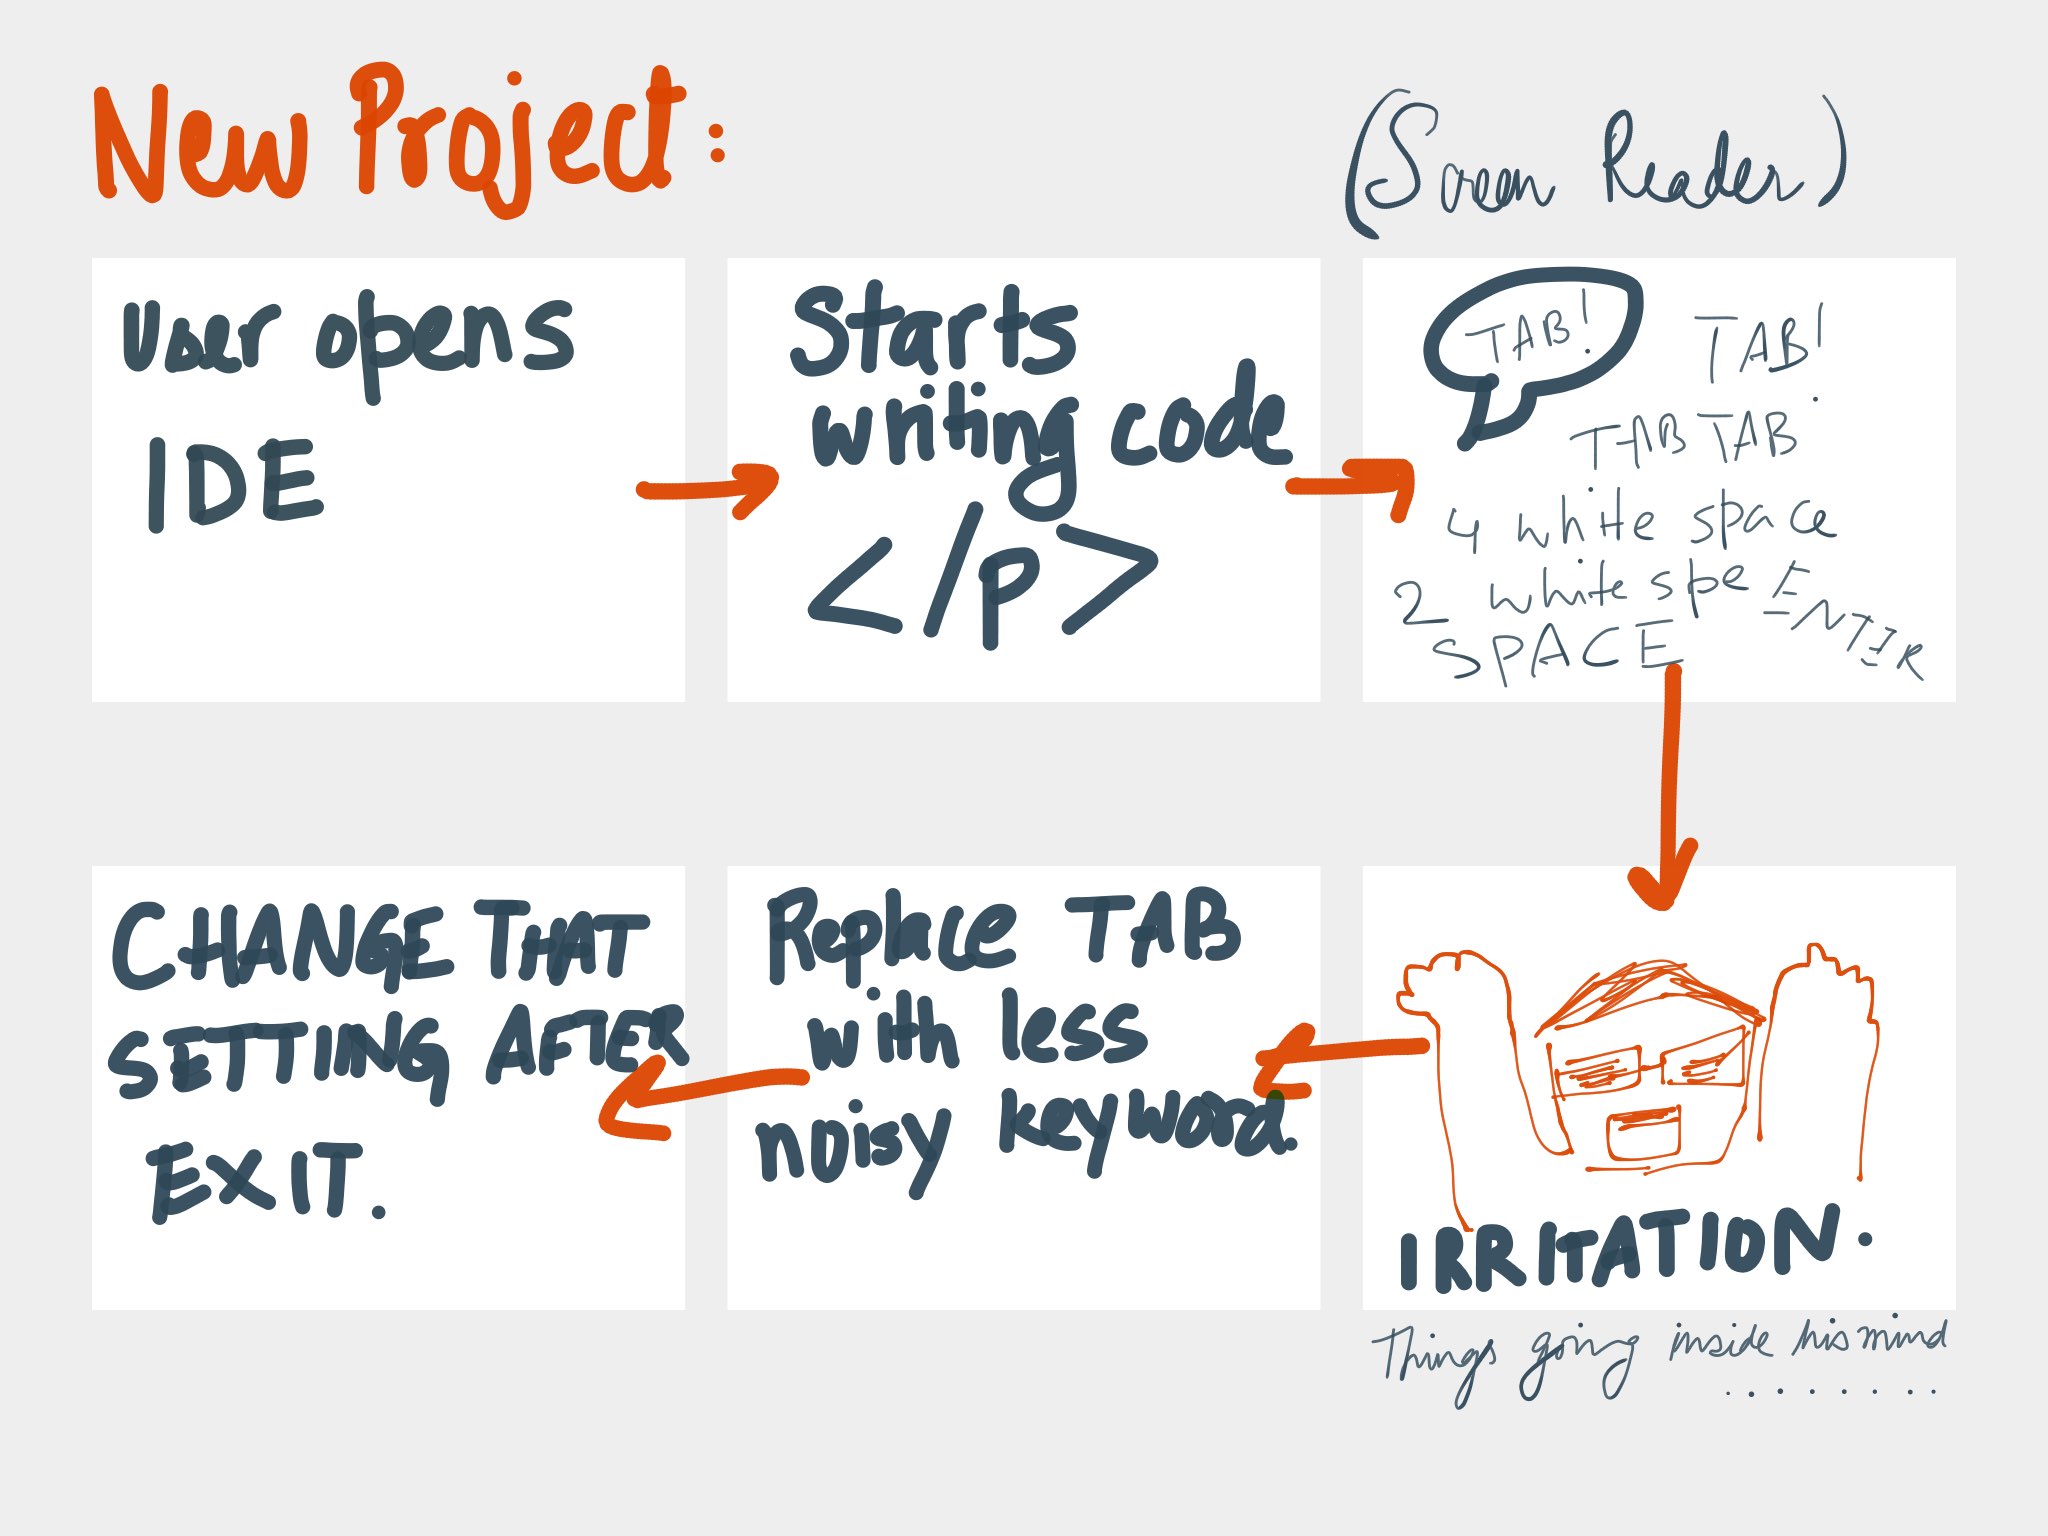 New Project:
(Screen Reader)
User opens
IDE
Starts
writing code
</p>
TAB! TAB!
TAB TAB
4 white space
2 white spe ENTER
SPACE
IRRITATION.
Things going inside his mind
........
Replace TAB
with less
noisy keyword.
CHANGE THAT
SETTING AFTER
EXIT.